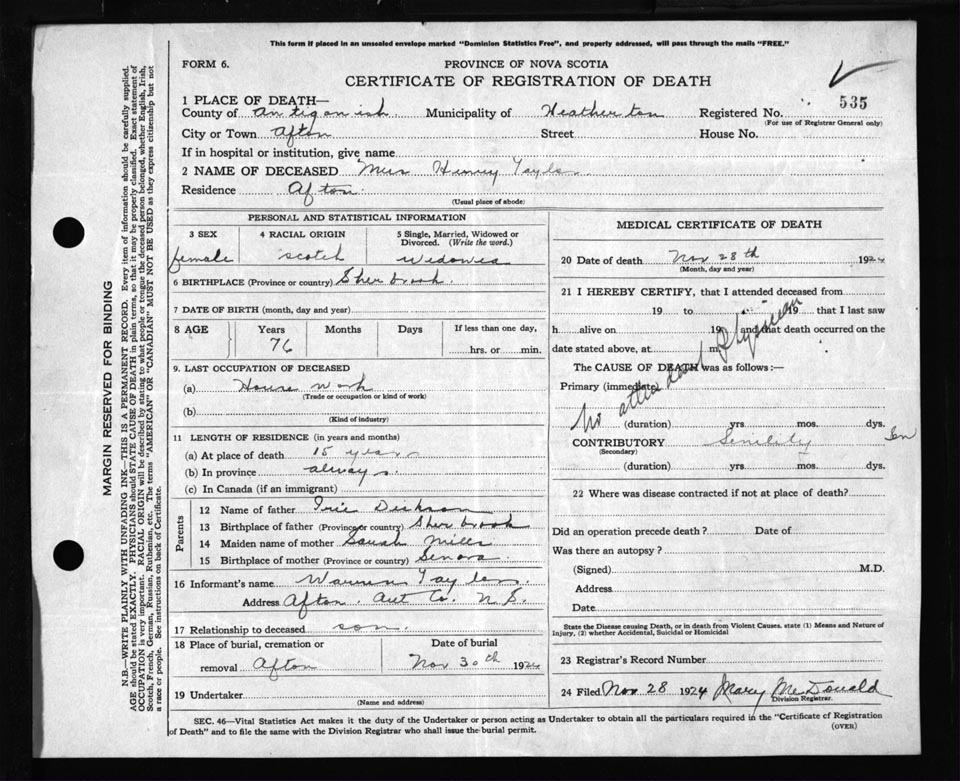 This form if placed in an unsealed envelope marked "Dominion Statistics Free", and properly addressed, will pass through the mails "FREE."
FORM 6.
PROVINCE OF NOVA SCOTIA
CERTIFICATE OF REGISTRATION OF DEATH
1 PLACE OF DEATH—
County of Antigonish Municipality of Heatherton Registered No. 535
(For use of Registrar General only)
City or Town Afton Street House No.
If in hospital or institution, give name
2 NAME OF DECEASED Mrs Henry Taylor
Residence Afton
(Usual place of abode)
PERSONAL AND STATISTICAL INFORMATION
3 SEX 4 RACIAL ORIGIN 5 Single, Married, Widowed or Divorced. (Write the word.)
female scotch Widowed
6 BIRTHPLACE (Province or country) Sherbrook.
7 DATE OF BIRTH (month, day and year)
8 AGE Years Months Days If less than one day,
76 hrs. or min.
9. LAST OCCUPATION OF DECEASED
(a) House Work
(Trade or occupation or kind of work)
(b)
(Kind of industry)
11 LENGTH OF RESIDENCE (in years and months)
(a) At place of death 15 years
(b) In province always
(c) In Canada (if an immigrant)
Parents
12 Name of father Dickson
13 Birthplace of father (Province or country) Sherbrook
14 Maiden name of mother Sarah Mills
15 Birthplace of mother (Province or country)
16 Informant's name Warren Taylor
Address Afton. Ant Co. N.S.
17 Relationship to deceased son.
18 Place of burial, cremation or removal Afton
Date of burial
Nov 30th 1924
19 Undertaker
(Name and address)
MEDICAL CERTIFICATE OF DEATH
20 Date of death Nov 28th 1924
(Month, day and year)
21 I HEREBY CERTIFY, that I attended deceased from
19 to 19 that I last saw
h alive on 19 and that death occurred on the
date stated above, at m.
The CAUSE OF DEATH was as follows:—
Primary (immediate)
No attendant Physician
(duration) yrs. mos. dys.
CONTRIBUTORY Senility
(Secondary)
(duration) yrs. mos. dys.
22 Where was disease contracted if not at place of death?
Did an operation precede death? Date of
Was there an autopsy?
(Signed) M.D.
Address
Date
State the Disease causing Death, or in death from Violent Causes, state (1) Means and Nature of
Injury, (2) whether Accidental, Suicidal or Homicidal
23 Registrar's Record Number
24 Filed Nov 28 1924 Mary McDonald
Division Registrar.
SEC. 46—Vital Statistics Act makes it the duty of the Undertaker or person acting as Undertaker to obtain all the particulars required in the "Certificate of Registration
of Death" and to file the same with the Division Registrar who shall issue the burial permit.
(OVER)
MARGIN RESERVED FOR BINDING
N.B.—WRITE PLAINLY WITH UNFADING INK—THIS IS A PERMANENT RECORD. Every item of information should be carefully supplied.
AGE should be stated EXACTLY. PHYSICIANS should STATE CAUSE OF DEATH in plain terms, so that it may be properly classified. Exact statement of
OCCUPATION is very important. RACIAL ORIGIN will be described by stating to what people or tongue the deceased person belonged, whether English, Irish,
Scotch, French, German, Russian, Ruthenian, etc. The terms "AMERICAN" OR "CANADIAN" MUST NOT BE USED as they express citizenship but not
a race or people. See instructions on back of Certificate.